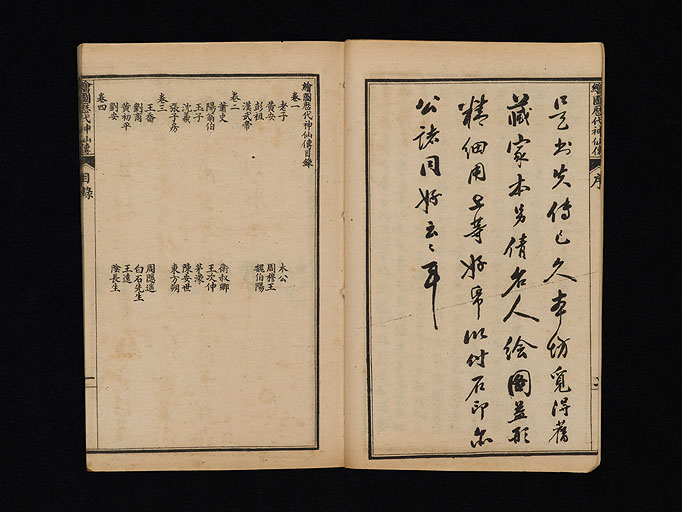 繪圖歷代神仙傳 序
是書失傳已久本坊覓得舊
藏家本另倩名人繪圖益形
精細用上等好帋以付石印
公諸同好云云耳
繪圖歷代神仙傳目錄
卷一
老子 木公
黃安 周穆王
彭祖 魏伯陽
漢武帝
卷二
蕭史 衛叔卿
陽翁伯 王次仲
玉子 茅濛
沈羲 陳安世
張子房 東方朔
卷三
王喬 周隱遙
劉商 白石先生
黃初平 王遠
劉安 陰長生
卷四
繪圖歷代神仙傳 目錄 一